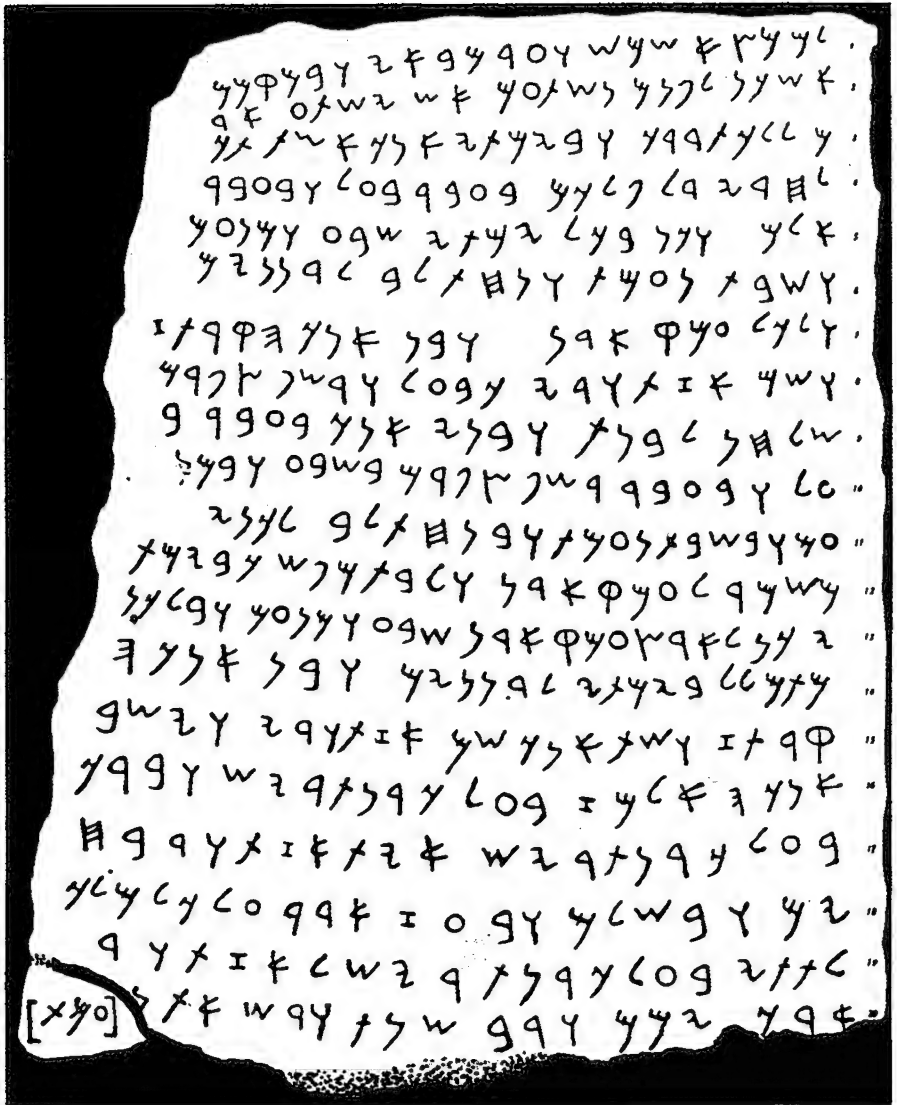 𐤋𐤌𐤌𐤑𐤀 𐤔𐤌𐤔 𐤅𐤏𐤃 𐤌𐤁𐤀𐤉 𐤅𐤁𐤌𐤒𐤌𐤌
𐤀𐤔 𐤊𐤍 𐤋𐤐𐤍𐤌 𐤍𐤔𐤕𐤏𐤌 𐤀𐤔 𐤉𐤔𐤕𐤏 𐤀𐤃
𐤌 𐤋𐤋𐤊𐤕 𐤃𐤓𐤊 𐤅𐤁𐤉𐤌𐤕𐤉 𐤀𐤍𐤊 𐤀𐤔𐤕 𐤕𐤊
𐤋𐤇𐤃𐤉 𐤃𐤋 𐤐𐤋𐤊𐤌 𐤁𐤏𐤁𐤓 𐤁𐤏𐤋 𐤅𐤁𐤏𐤁𐤓
𐤀𐤋𐤌 𐤅𐤊𐤍 𐤁𐤊𐤋 𐤉𐤌𐤕𐤉 𐤔𐤁𐤏 𐤅𐤌𐤍𐤏𐤌
𐤅𐤔𐤁𐤕 𐤍𐤏𐤌𐤕 𐤅𐤍𐤇𐤕 𐤋𐤁 𐤋𐤃𐤍𐤍𐤉𐤌
𐤅𐤋𐤊𐤋 𐤏𐤌𐤒 𐤀𐤃𐤍 𐤅𐤁𐤍 𐤀𐤍𐤊 𐤄𐤒𐤓𐤕 𐤆
𐤅𐤔𐤌 𐤀𐤆𐤕𐤅𐤃𐤉 𐤊𐤁𐤏𐤋 𐤅𐤓𐤔𐤐 𐤑𐤐𐤓𐤌
𐤔𐤋𐤇𐤍 𐤋𐤁𐤍𐤕 𐤅𐤁𐤍𐤉 𐤀𐤍𐤊 𐤁𐤏𐤁𐤓 𐤁
𐤏𐤋 𐤅𐤁𐤏𐤁𐤓 𐤓𐤔𐤐 𐤑𐤐𐤓𐤌 𐤁𐤔𐤁𐤏 𐤅𐤁𐤌𐤍
𐤏𐤌 𐤅𐤁𐤔𐤁𐤕 𐤍𐤏𐤌𐤕 𐤅𐤁𐤍𐤇𐤕 𐤋𐤁 𐤋𐤊𐤍𐤉
𐤌𐤔𐤌𐤓 𐤋𐤏𐤌𐤒 𐤀𐤃𐤍 𐤅𐤋𐤁𐤕 𐤌𐤐𐤔 𐤊𐤁𐤉𐤌𐤕
𐤉 𐤊𐤍 𐤋𐤀𐤓𐤑 𐤏𐤌𐤒 𐤀𐤃𐤍 𐤔𐤁𐤏 𐤅𐤌𐤍𐤏𐤌 𐤅𐤁𐤋 𐤊𐤍
𐤌𐤕𐤌 𐤋𐤋 𐤁𐤉𐤌𐤕𐤉 𐤋𐤃𐤍𐤍𐤉𐤌 𐤅𐤁𐤍 𐤀𐤍𐤊 𐤄
𐤒𐤓𐤕 𐤆 𐤅𐤔𐤕 𐤀𐤍𐤊 𐤔𐤌 𐤀𐤆𐤕𐤅𐤃𐤉 𐤅𐤉𐤔𐤁
𐤀𐤍𐤊 𐤄𐤀𐤋𐤌 𐤆 𐤁𐤏𐤋 𐤊𐤓𐤍𐤕𐤓𐤉𐤔 𐤅𐤁𐤓𐤊
𐤁𐤏𐤋 𐤊𐤓𐤍𐤕𐤓𐤉𐤔 𐤀𐤉𐤕 𐤀𐤆𐤕𐤅𐤃 𐤁𐤇
𐤉𐤌 𐤅𐤁𐤔𐤋𐤌 𐤅𐤁𐤏𐤆 𐤀𐤃𐤓 𐤏𐤋 𐤊𐤋 𐤌𐤋𐤊
𐤋𐤕𐤕𐤉 𐤁𐤏𐤋 𐤊𐤓𐤍𐤕𐤓𐤉𐤔 𐤋𐤀𐤆𐤕𐤅𐤃
𐤀𐤓𐤊 𐤉𐤌𐤌 𐤅𐤓𐤁 𐤔𐤍𐤕 𐤅𐤓𐤔𐤀𐤕 𐤍[𐤏𐤌𐤕]